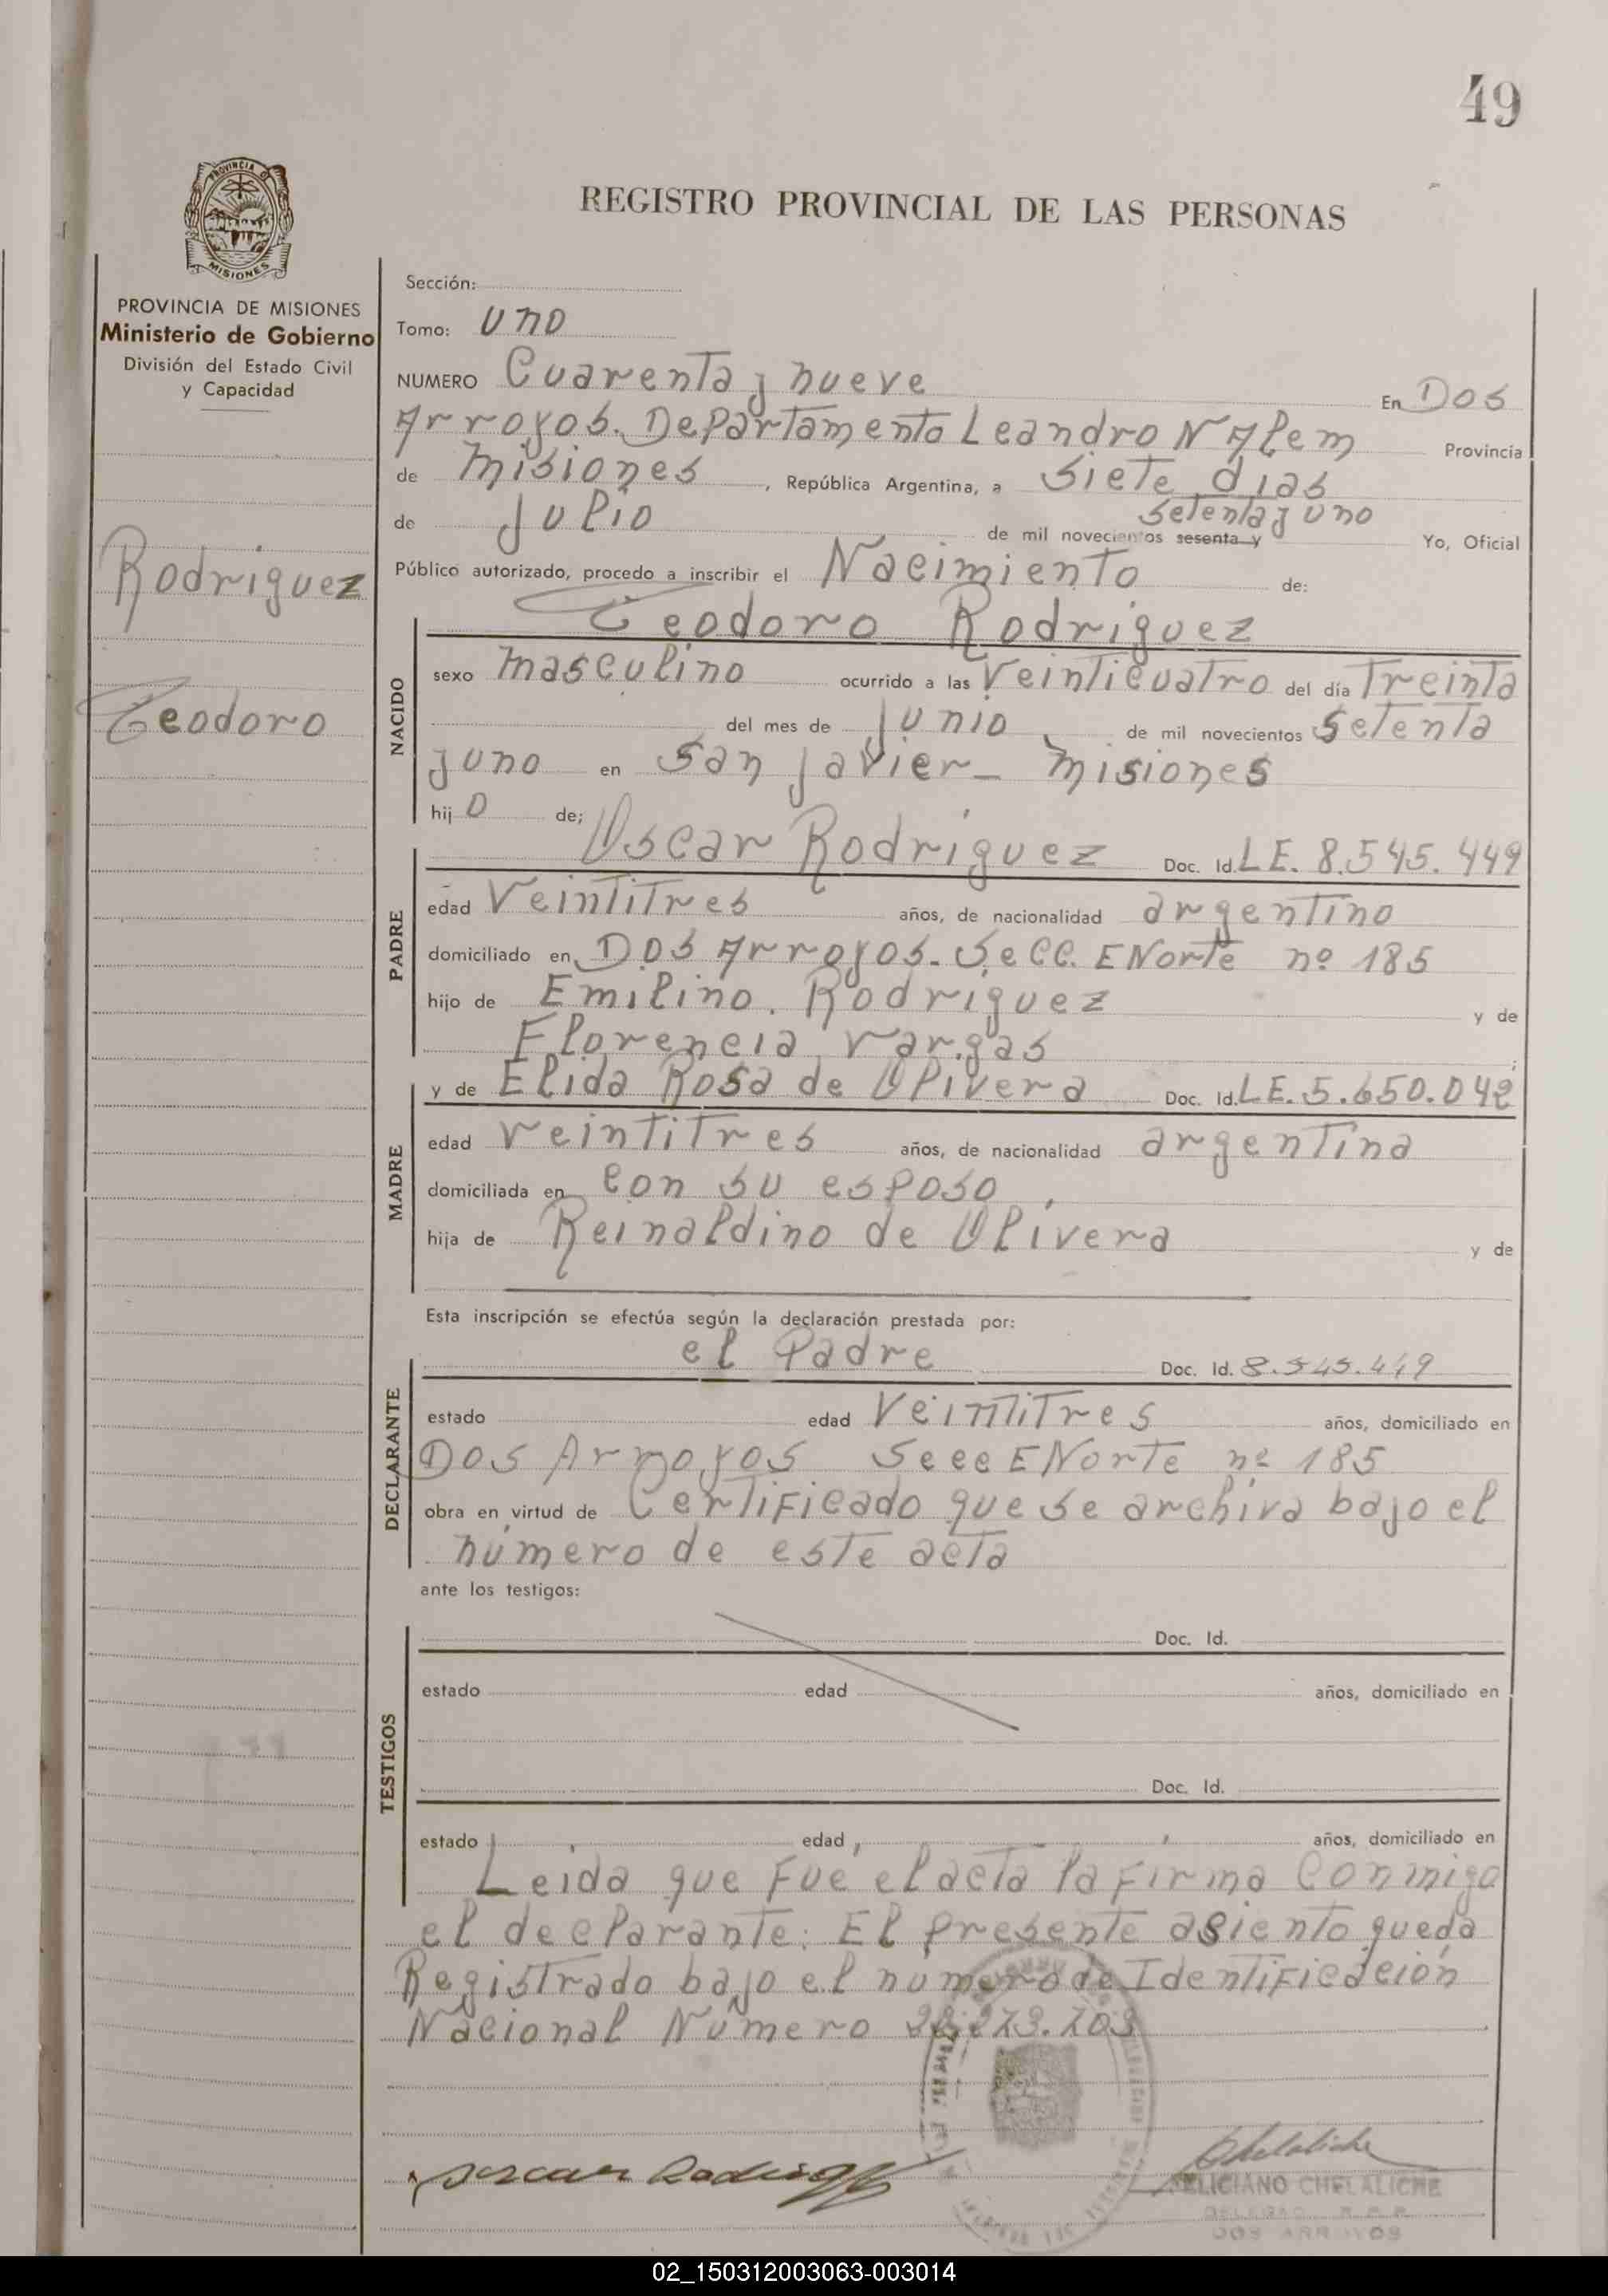 49
PROVINCIA DE
MISIONES
REGISTRO PROVINCIAL DE LAS PERSONAS
PROVINCIA DE MISIONES
Ministerio de Gobierno
División del Estado Civil
y Capacidad
Rodriguez
Teodoro
Sección:
Tomo: uno
NUMERO Cuarenta y nueve En Dos
Arroyos. Departamento Leandro N Alem Provincia
de Misiones, República Argentina, a siete dias
de Julio de mil novecientos sesenta y setenta y uno Yo, Oficial
Público autorizado, procedo a inscribir el Nacimiento de:
Teodoro Rodriguez
NACIDO
sexo masculino ocurrido a las Veinticuatro del día Treinta
del mes de Junio de mil novecientos setenta
y uno en San Javier - Misiones
hijo de;
PADRE
Oscar Rodriguez Doc. Id. LE. 8.545.449
edad Veintitres años, de nacionalidad argentino
domiciliado en Dos Arroyos. Secc. E Norte nº 185
hijo de Emilino Rodriguez y de
Florencia Vargas
MADRE
y de Elida Rosa de Olivera Doc. Id. LE. 5.650.042
edad Veintitres años, de nacionalidad argentina
domiciliada en con su esposo
hija de Reinaldino de Olivera y de
Esta inscripción se efectúa según la declaración prestada por:
DECLARANTE
el Padre Doc. Id. 8.545.449
estado edad Veintitres años, domiciliado en
Dos Arroyos Secc E Norte nº 185
obra en virtud de Certificado que se archiva bajo el
número de este acta
ante los testigos:
TESTIGOS
Doc. Id.
estado edad años, domiciliado en
Doc. Id.
estado edad años, domiciliado en
Leida que fué el acta la firma conmigo
el declarante. El presente asiento queda
Registrado bajo el numero de Identificación
Nacional Número
Oscar Rodriguez
Chelaliche
FELICIANO CHELALICHE
DOS ARROYOS
02_150312003063-003014